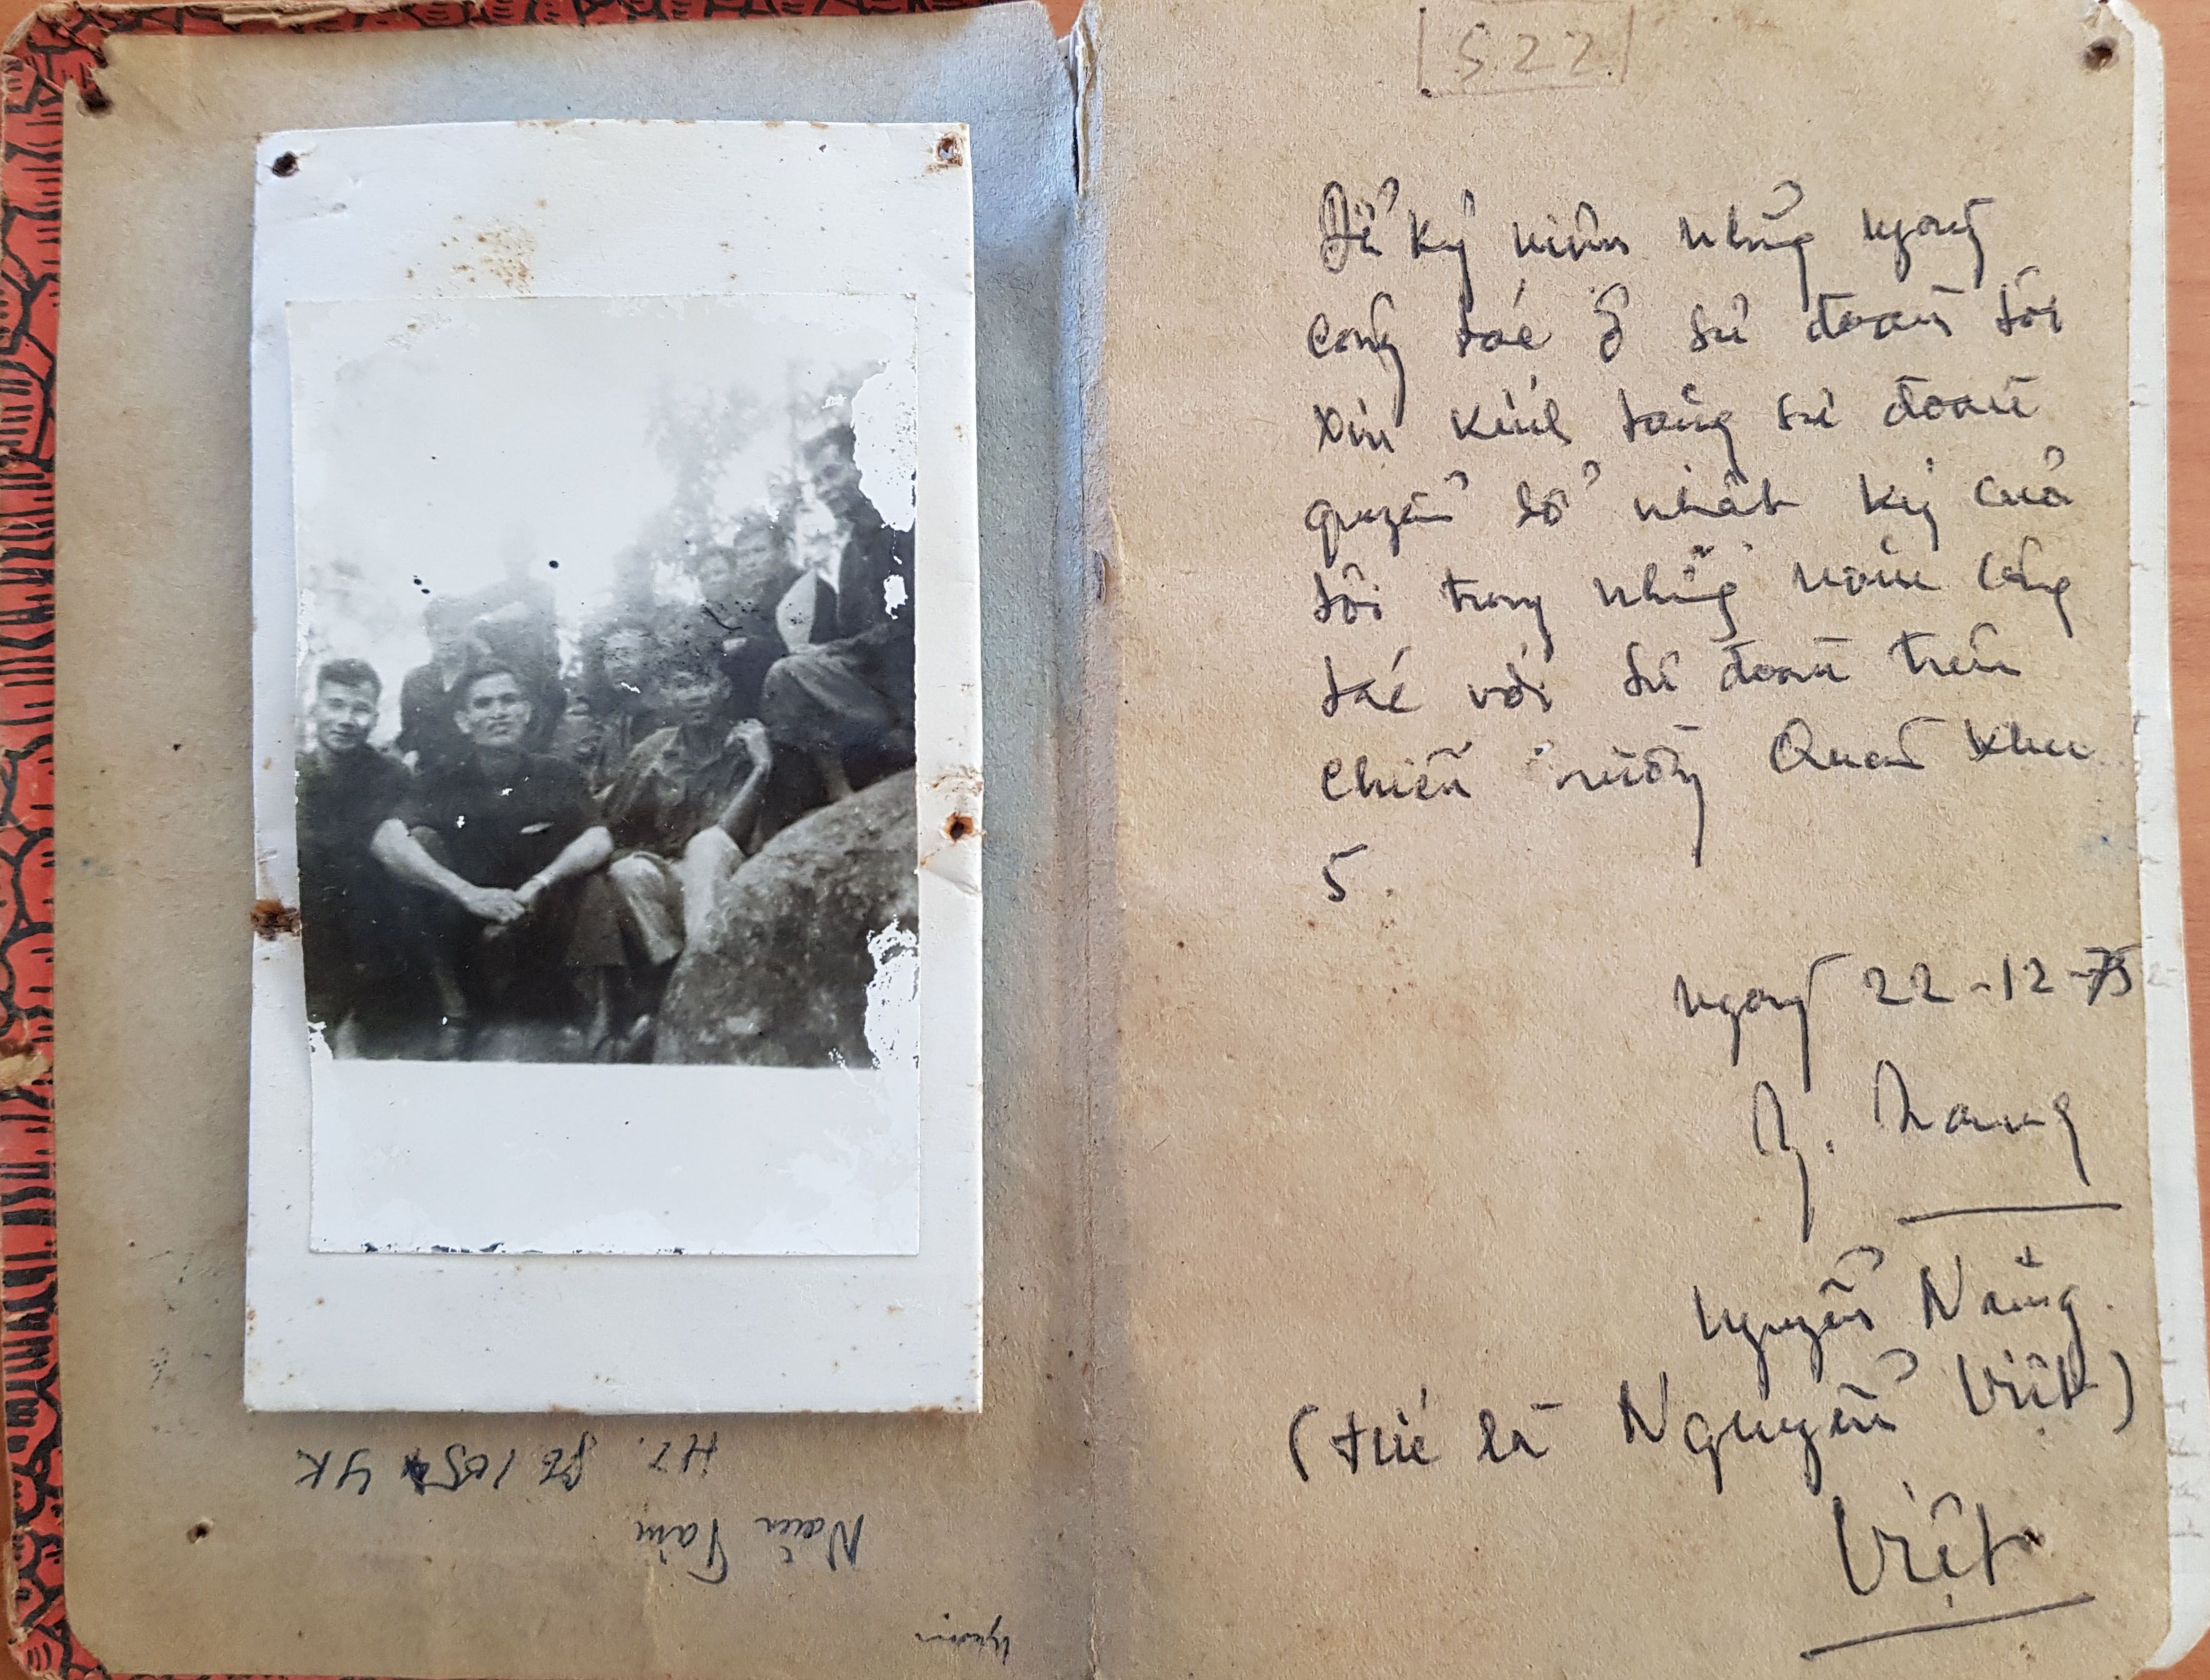 522
Để kỷ niệm những ngày
công tác ở sư đoàn tôi
xin kính tặng sư đoàn
quyển sổ nhật ký của
tôi trong những năm công
tác với sư đoàn trên
chiến trường Quân khu
5.
ngày 22-12-75
Nguyễn Năng.
(tức là Nguyễn Việt)
Việt
Năm Tâm